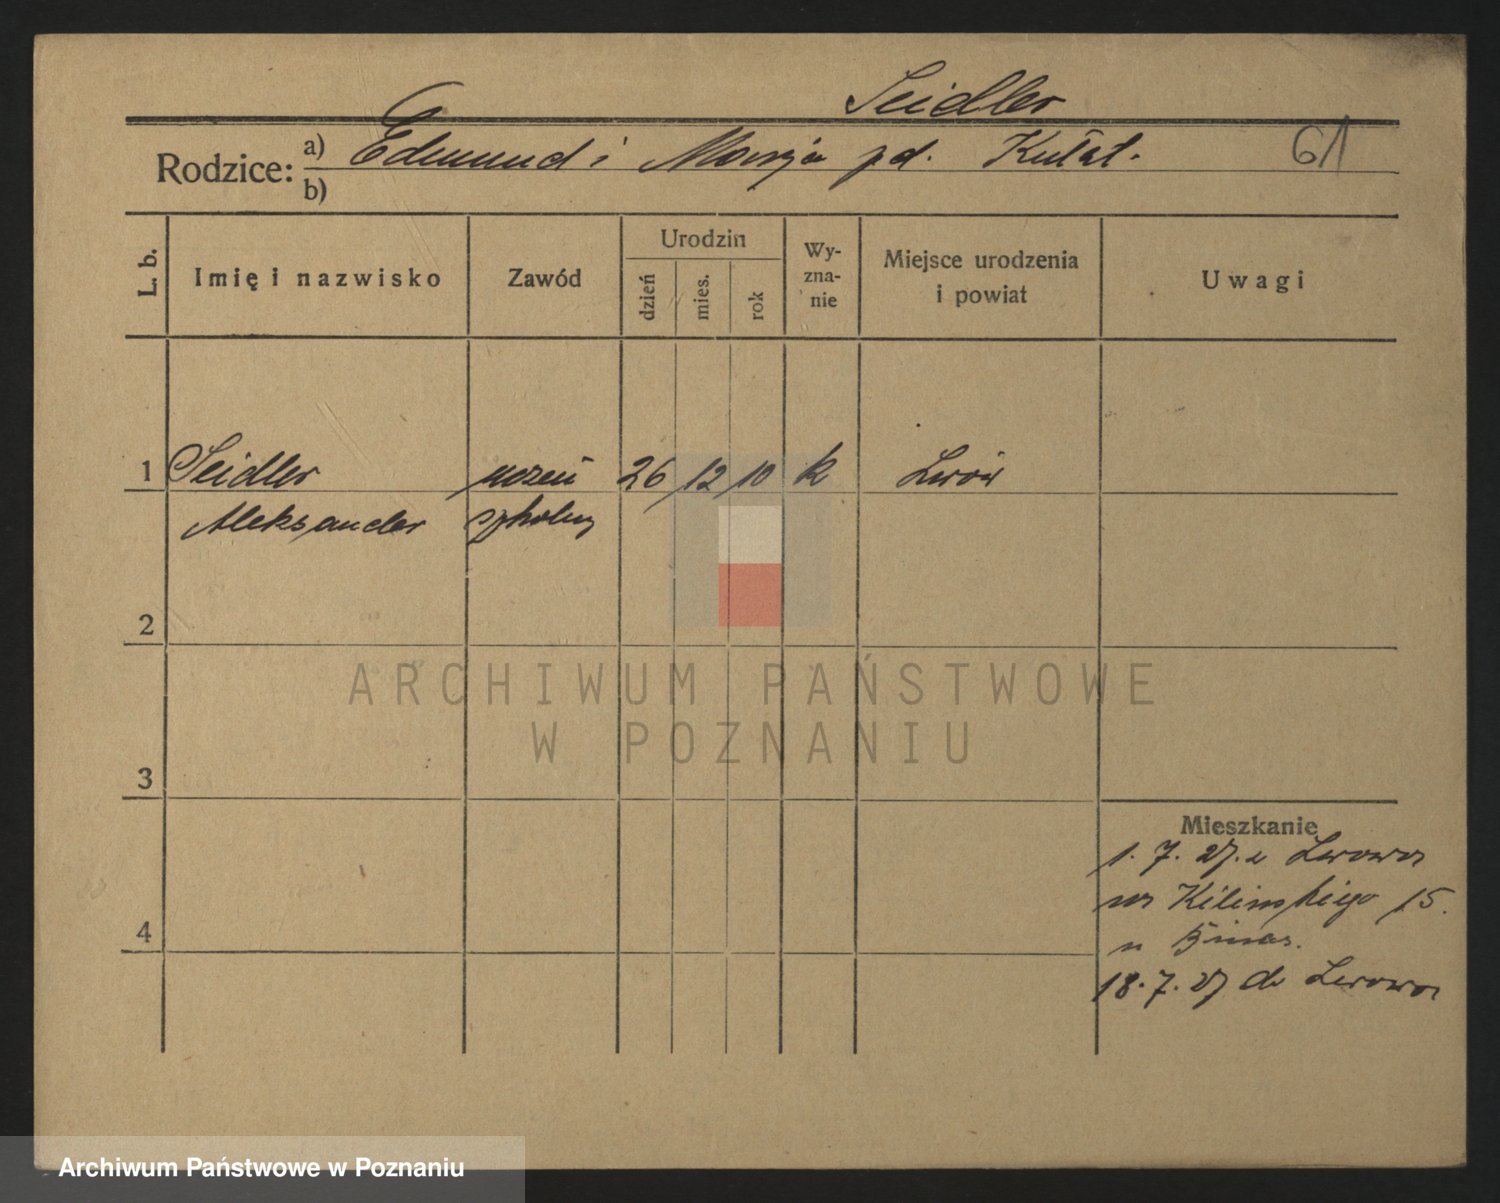 Seidler
Rodzice: a) Edmund i Marja pd. Kułat. 61
b)
L. b. Imię i nazwisko Zawód Urodzin dzień mies. rok Wy-zna-nie Miejsce urodzenia i powiat Uwagi
1 Seidler uczeń 26 12 10 k Lwów
Aleksander szkolny
2
3
Mieszkanie
1. 7. 27. z Lwowa
Kilińskiego 15.
4
18. 7. 27 do Lwowa
ARCHIWUM PAŃSTWOWE
W POZNANIU
Archiwum Państwowe w Poznaniu